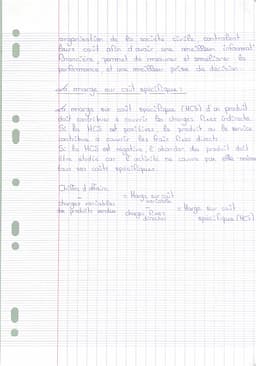 organisation de la société civile contrôlent
leurs coût afin d'avoir une meilleur
financière, permet de mesurer et améliorer la
performance et une meilleur prise de décision.
marge sur coût spécifique :
marge sur coût spécifique (MCS) d'un produit
doit contribuer à couvrir les charges fixes indirects.
Si la MCS est positives le produit ou le service
contribue à couvrir les frais fixes directs
Si la MCS est négative, l'abandon du produit doit
être étudié car l'activité ne couvre pas elle même
tous ses coûts spécifiques.
Chiffre d'affaire
-
charges variables
de produits vendus
= Marge sur coût
variable
-
charges fixes
directes
= Marge sur coût
spécifique (MCS)